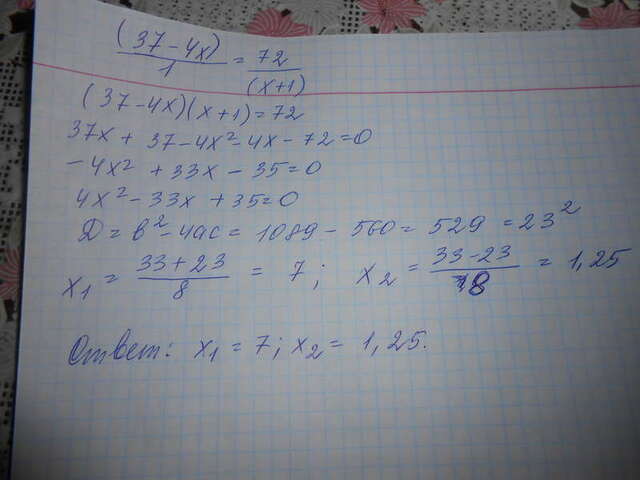 (37-4x)/1 = 72/(x+1)
(37-4x)(x+1)=72
37x + 37-4x²-4x-72=0
-4x² +33x - 35=0
4x²-33x+35=0
Д = в²-4ac = 1089-560= 529 =23²
x₁ = (33+23)/8 = 7; x₂ = (33-23)/8 = 1,25
Ответ: x₁ =7; x₂= 1,25.